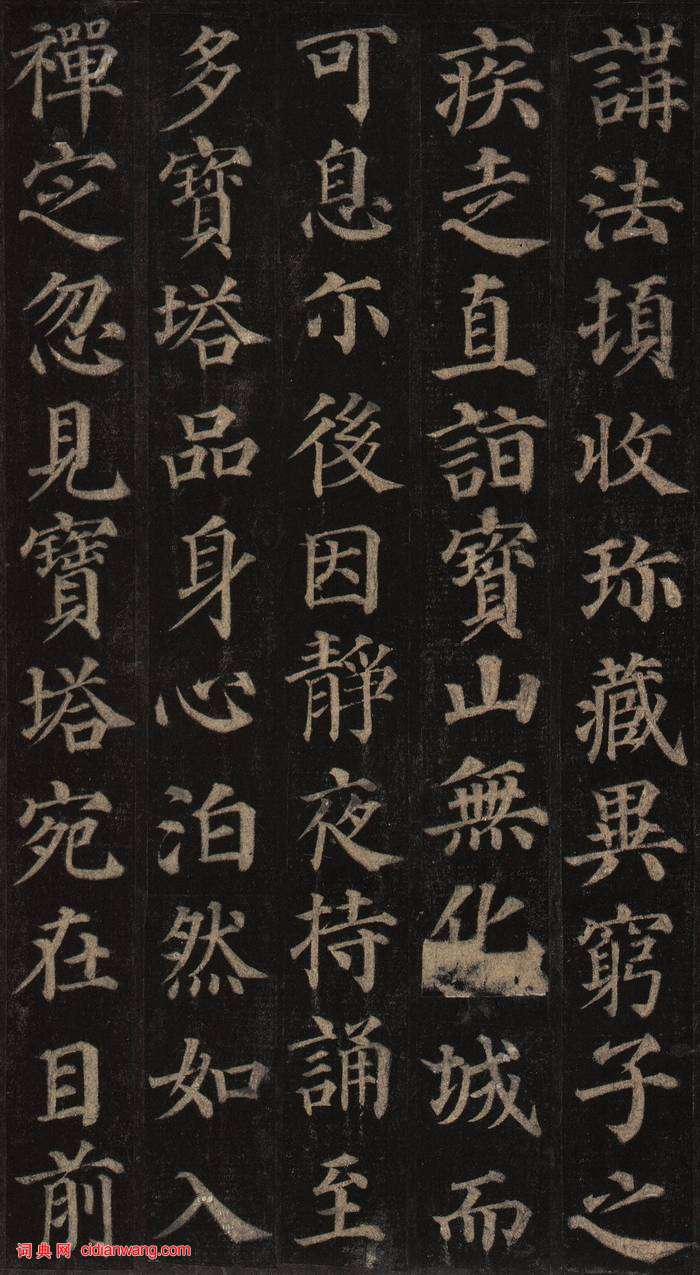 講法頓收珎藏異窮子之
疾走直詣寳山無化城而
可息尒後因靜夜持誦至
多寶塔品身心泊然如入
禪定忽見寶塔宛在目前
词典网 cidianwang.com